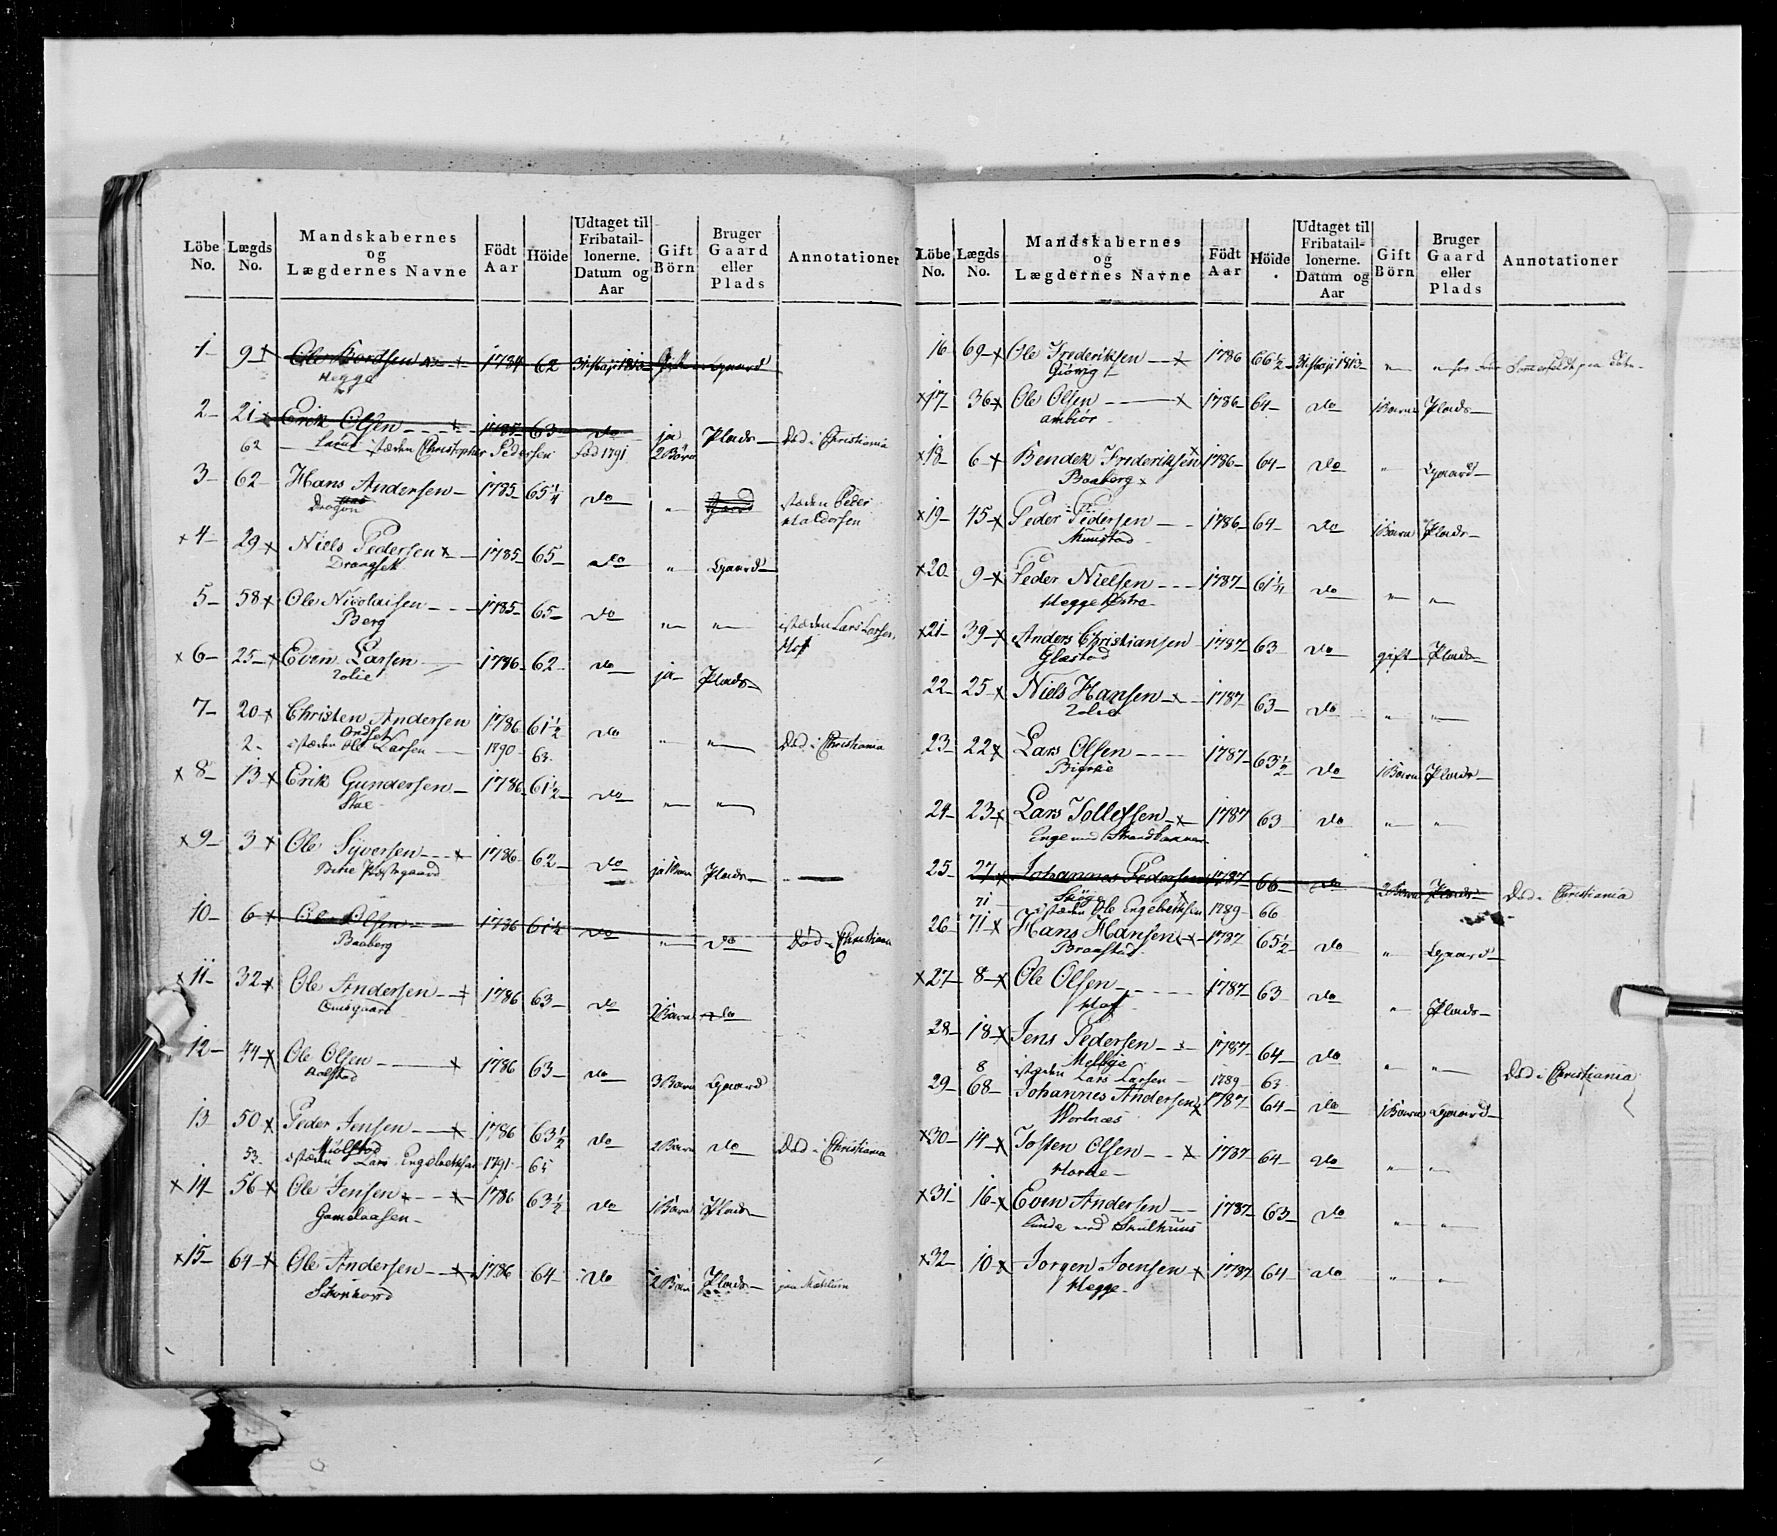 Löbe No. Lægds No. Mandskabernes og Lægdernes Navne Födt Aar Höide Udtaget til Fribataillonerne. Datum og Aar Gift Börn Bruger Gaard eller Plads Annotationer
1- 9 Ole Bordsen 1784 62 31 Maji 1813 Gift Gaard
Hegge
2- 21 Erik Olsen 1785 63 do ja Plads Död i Christiania
62 i stæden Christopher Pedersen föd 1791 2 Börn
3- 62 Hans Andersen 1785 65¼ do " Gaard i stæden Peder
Dragon Haldorsen
×4- 29 Niels Pedersen 1785 65 do " Gaard
5- 58 Ole Nicolaisen 1785 65 do " " i stæden Lars Larsen
Berg Hof
×6- 25 Even Larsen 1786 62 do ja Plads
7- 20 Christen Andersen 1786 61½ do " " Död i Christiania
2- i stæden Ole Larsen 1790 63
×8- 13 Erik Gundersen 1786 61½ do " "
×9- 3 Ole Syversen 1786 62 do ja 1 Barn Plads
10- 6 Ole Olsen 1786 61½ do " do Död i Christiania
Baaberg
×11- 32 Ole Andersen 1786 63 do 2 Barn do
12- 44 Ole Olsen 1786 63 do 3 Barn Gaard
13- 50 Peder Jensen 1786 63½ do 2 Barn do Död i Christiania
53- i stæden Lars Engebretsen 1791 65
×14- 56 Ole Jensen 1786 63½ do 1 Barn Plads
×15- 64 Ole Andersen 1786 64 do 2 Barn Plads
Löbe No. Lægds No. Mandskabernes og Lægdernes Navne Födt Aar Höide Udtaget til Fribataillonerne. Datum og Aar Gift Börn Bruger Gaard eller Plads Annotationer
16 69 Ole Frederiksen 1786 66½ 31 Maji 1813 " "
Giövig
×17- 36 Ole Olsen 1786 64 do 1 Barn Plads
×18- 6 Bendek Frederiksen 1786 64 do " Gaard
Baaberg
×19- 45 Peder Pedersen 1786 64 do 1 Barn Plads
×20- 9 Peder Nielsen 1787 61¼ do " "
Hegge
×21- 39 Anders Christiansen 1787 63 do gift Plads
Glæstad
22- 25 Niels Hansen 1787 63 do " "
23- 22 Lars Olsen 1787 63½ do 1 Barn Plads
24- 23 Lars Tollefsen 1787 63 do " "
25- 27 Johannes Pedersen 1787 66 do 2 Barn Plads Död i Christiania
71 i stæden Ole Engebretsen 1789 66
26- 71 Hans Hansen 1787 65½ do " Gaard
×27- 8 Ole Olsen 1787 63 do " Plads
Hof
28- 18 Jens Pedersen 1787 64 do " " Död i Christiania
Melbye
8 i stæden Lars Larsen 1789 63
29- 68 Johannes Andersen 1787 64 do 1 Barn Gaard
×30- 14 Josten Olsen 1787 64 do " "
×31- 16 Even Andersen 1787 63 do " "
×32- 10 Jorgen Joensen 1787 64 do " "
Hegge